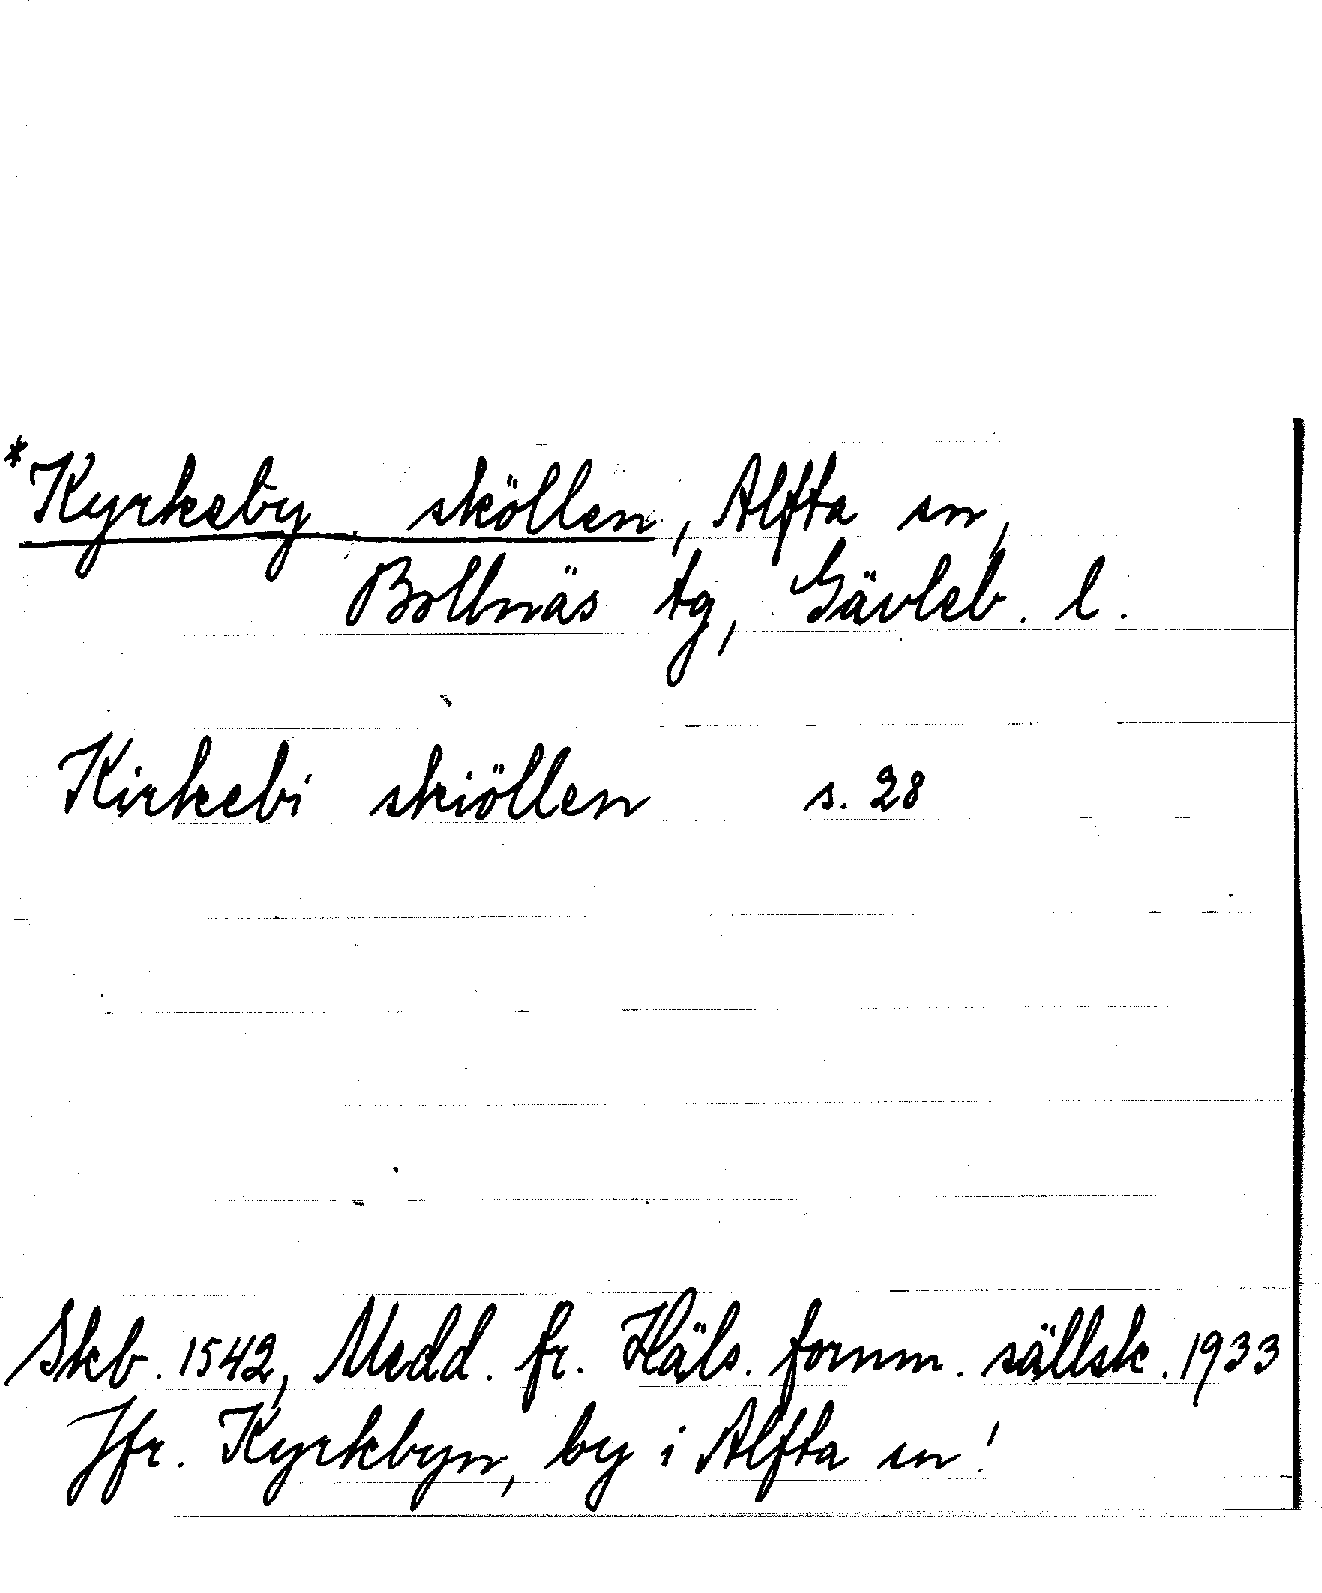 *Kyrkeby sköllen, Alfta sn,
Bollnäs tg, Gävleb. l.
Kirkebi skiöllen s. 28
Skb. 1542, Medd. fr. Häls. fornm. sällsk. 1933
Jfr. Kyrkbyn, by i Alfta sn!